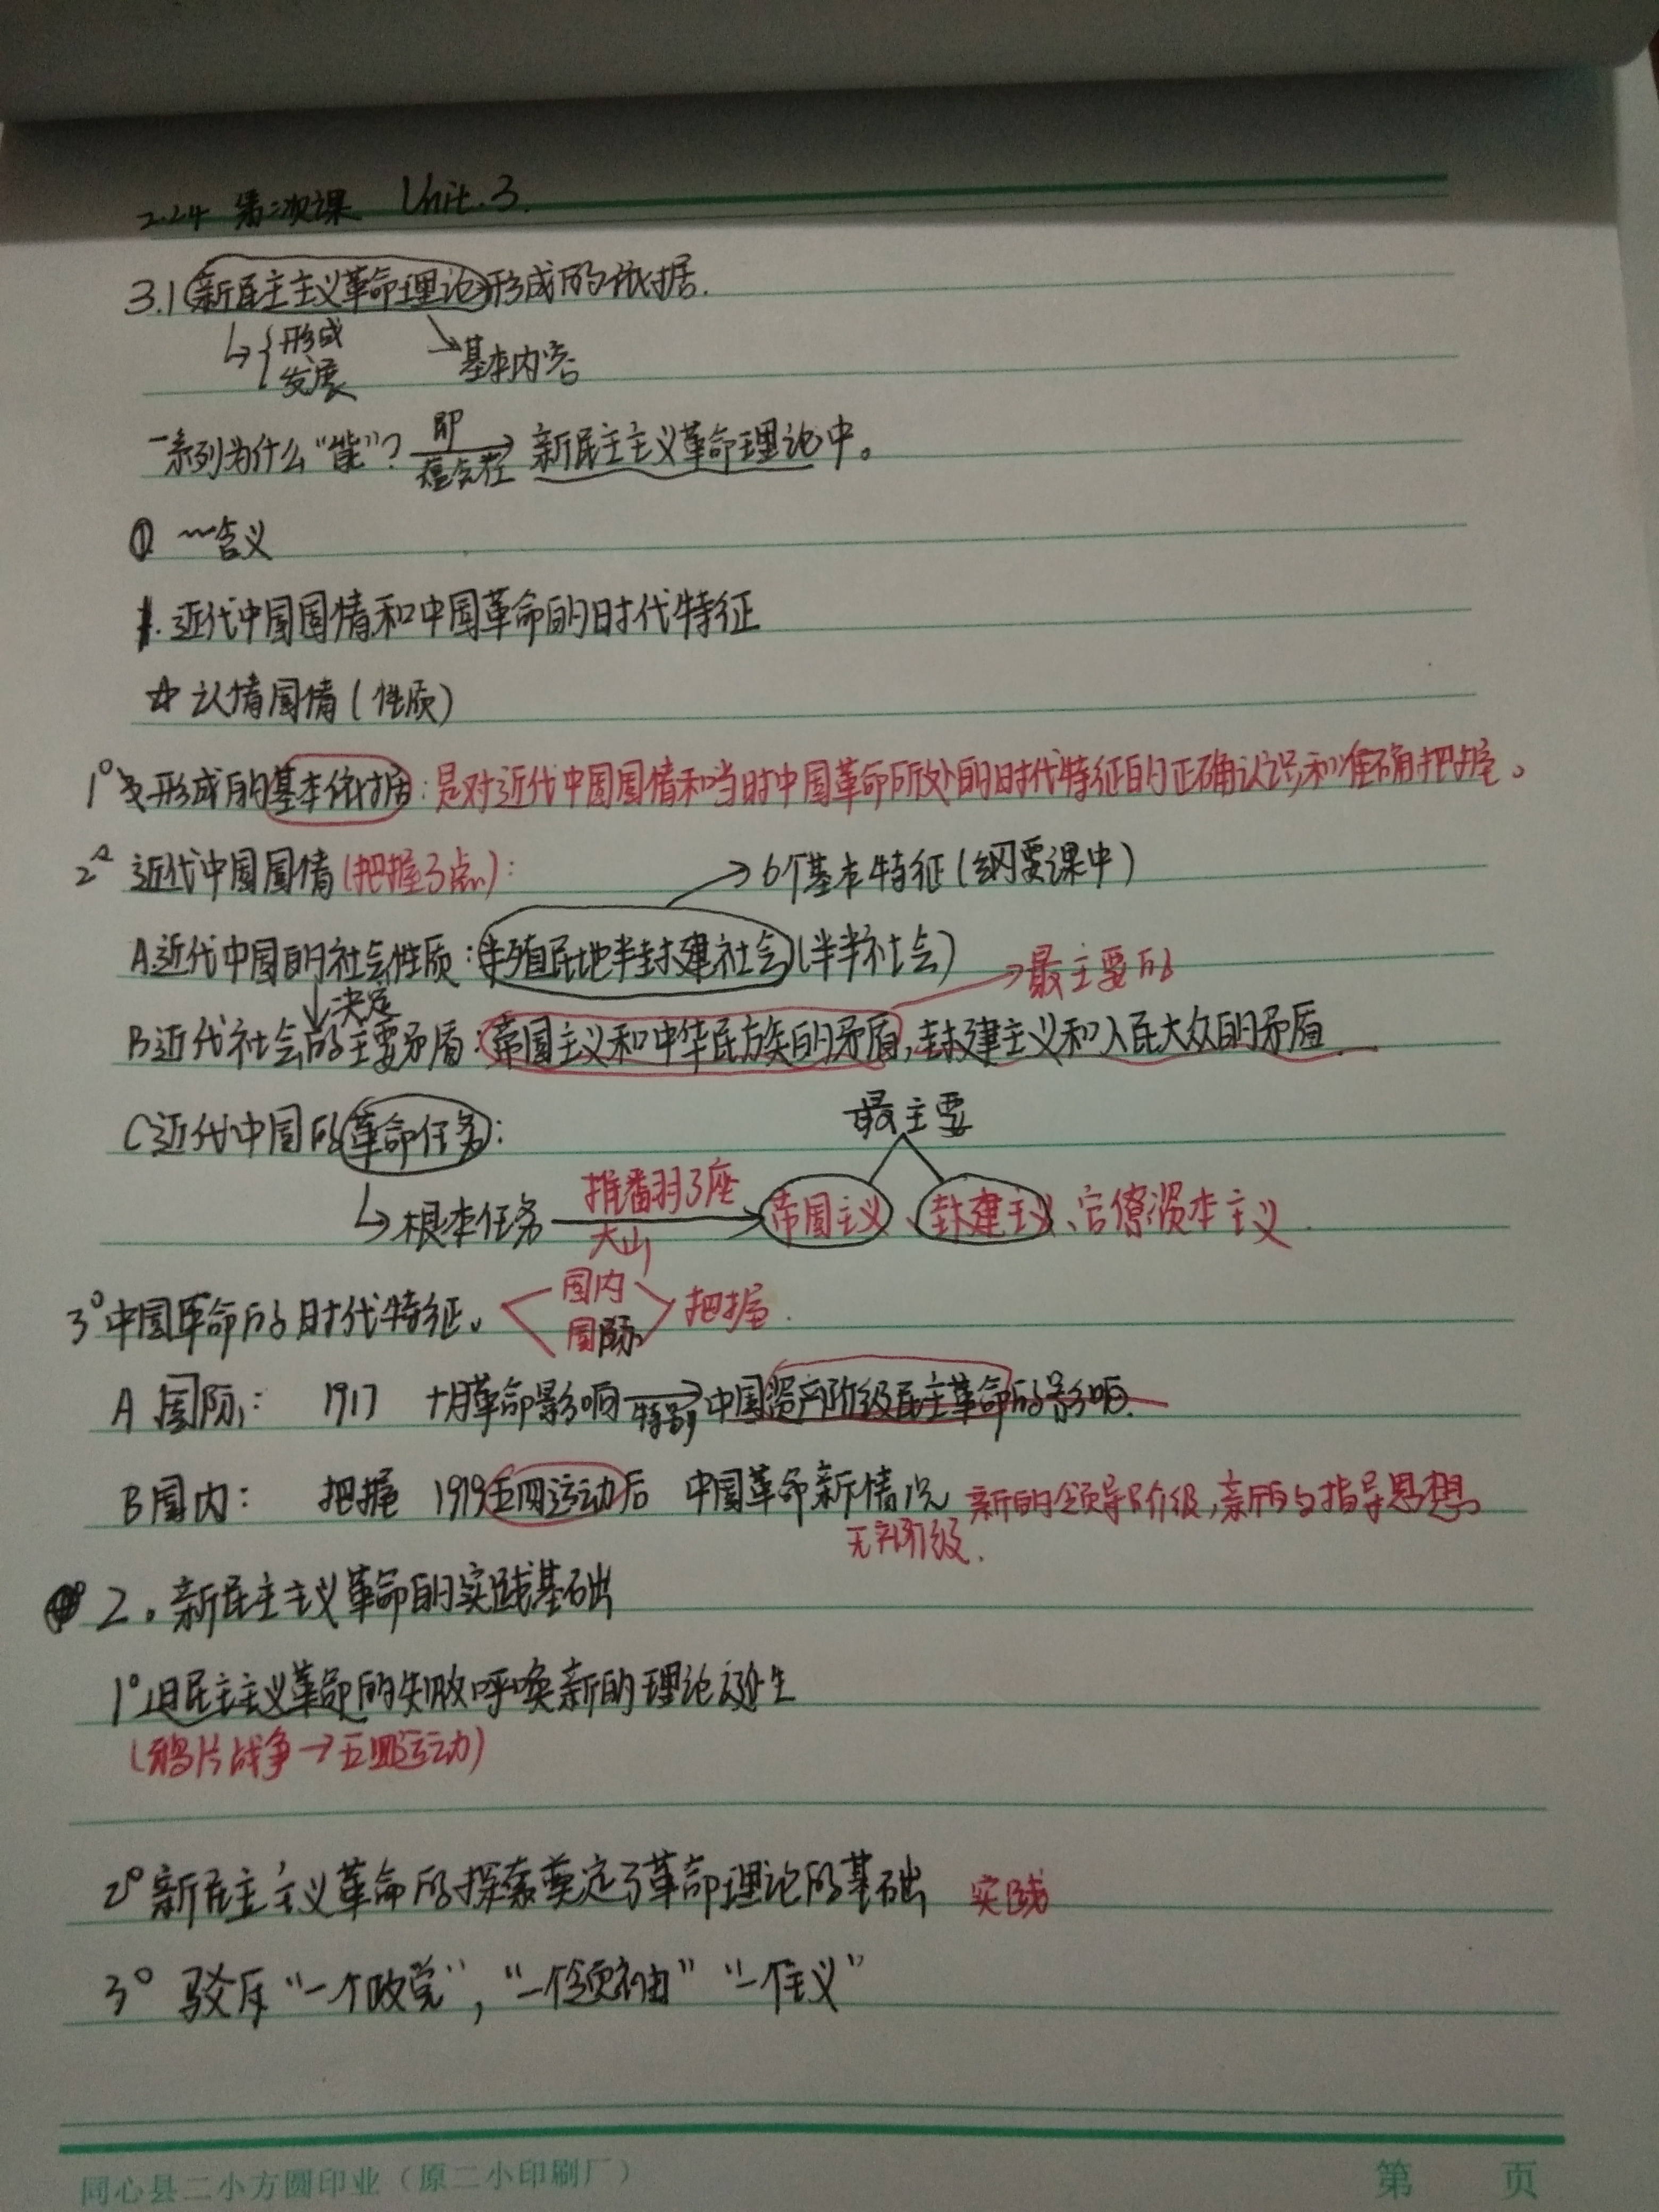 2.24 第二次课 Unit.3.
3.1 新民主主义革命理论形成的依据.
形成
发展
基本内容
一系列为什么“能”? 即 蕴含在 新民主主义革命理论中。
① 〜含义
1. 近代中国国情和中国革命的时代特征
☆ 认清国情(性质)
1° 形成的基本依据:是对近代中国国情和当时中国革命所处的时代特征的正确认识和准确把握。
2° 近代中国国情(把握3点): → 6个基本特征(纲要课中)
A.近代中国的社会性质:半殖民地半封建社会(半半社会)
↓决定 → 最主要的
B近代社会的主要矛盾:帝国主义和中华民族的矛盾,封建主义和人民大众的矛盾
C近代中国的革命任务: 最主要
↳根本任务 推翻3座大山 → 帝国主义、封建主义、官僚资本主义.
3°中国革命的时代特征。 国内 国际 把握.
A 国际: 1917 十月革命影响 特别→ 中国资产阶级民主革命的影响.
B国内: 把握 1919五四运动后 中国革命新情况 新的领导阶级,新的指导思想
无产阶级.
2。新民主主义革命的实践基础
1°旧民主主义革命的失败呼唤新的理论诞生
(鸦片战争→五四运动)
2°新民主主义革命的探索奠定了革命理论的基础 实践
3° 驳斥“一个政党”,“一个领袖”“一个主义”
同心县二小方圆印业(原二小印刷厂) 第 页